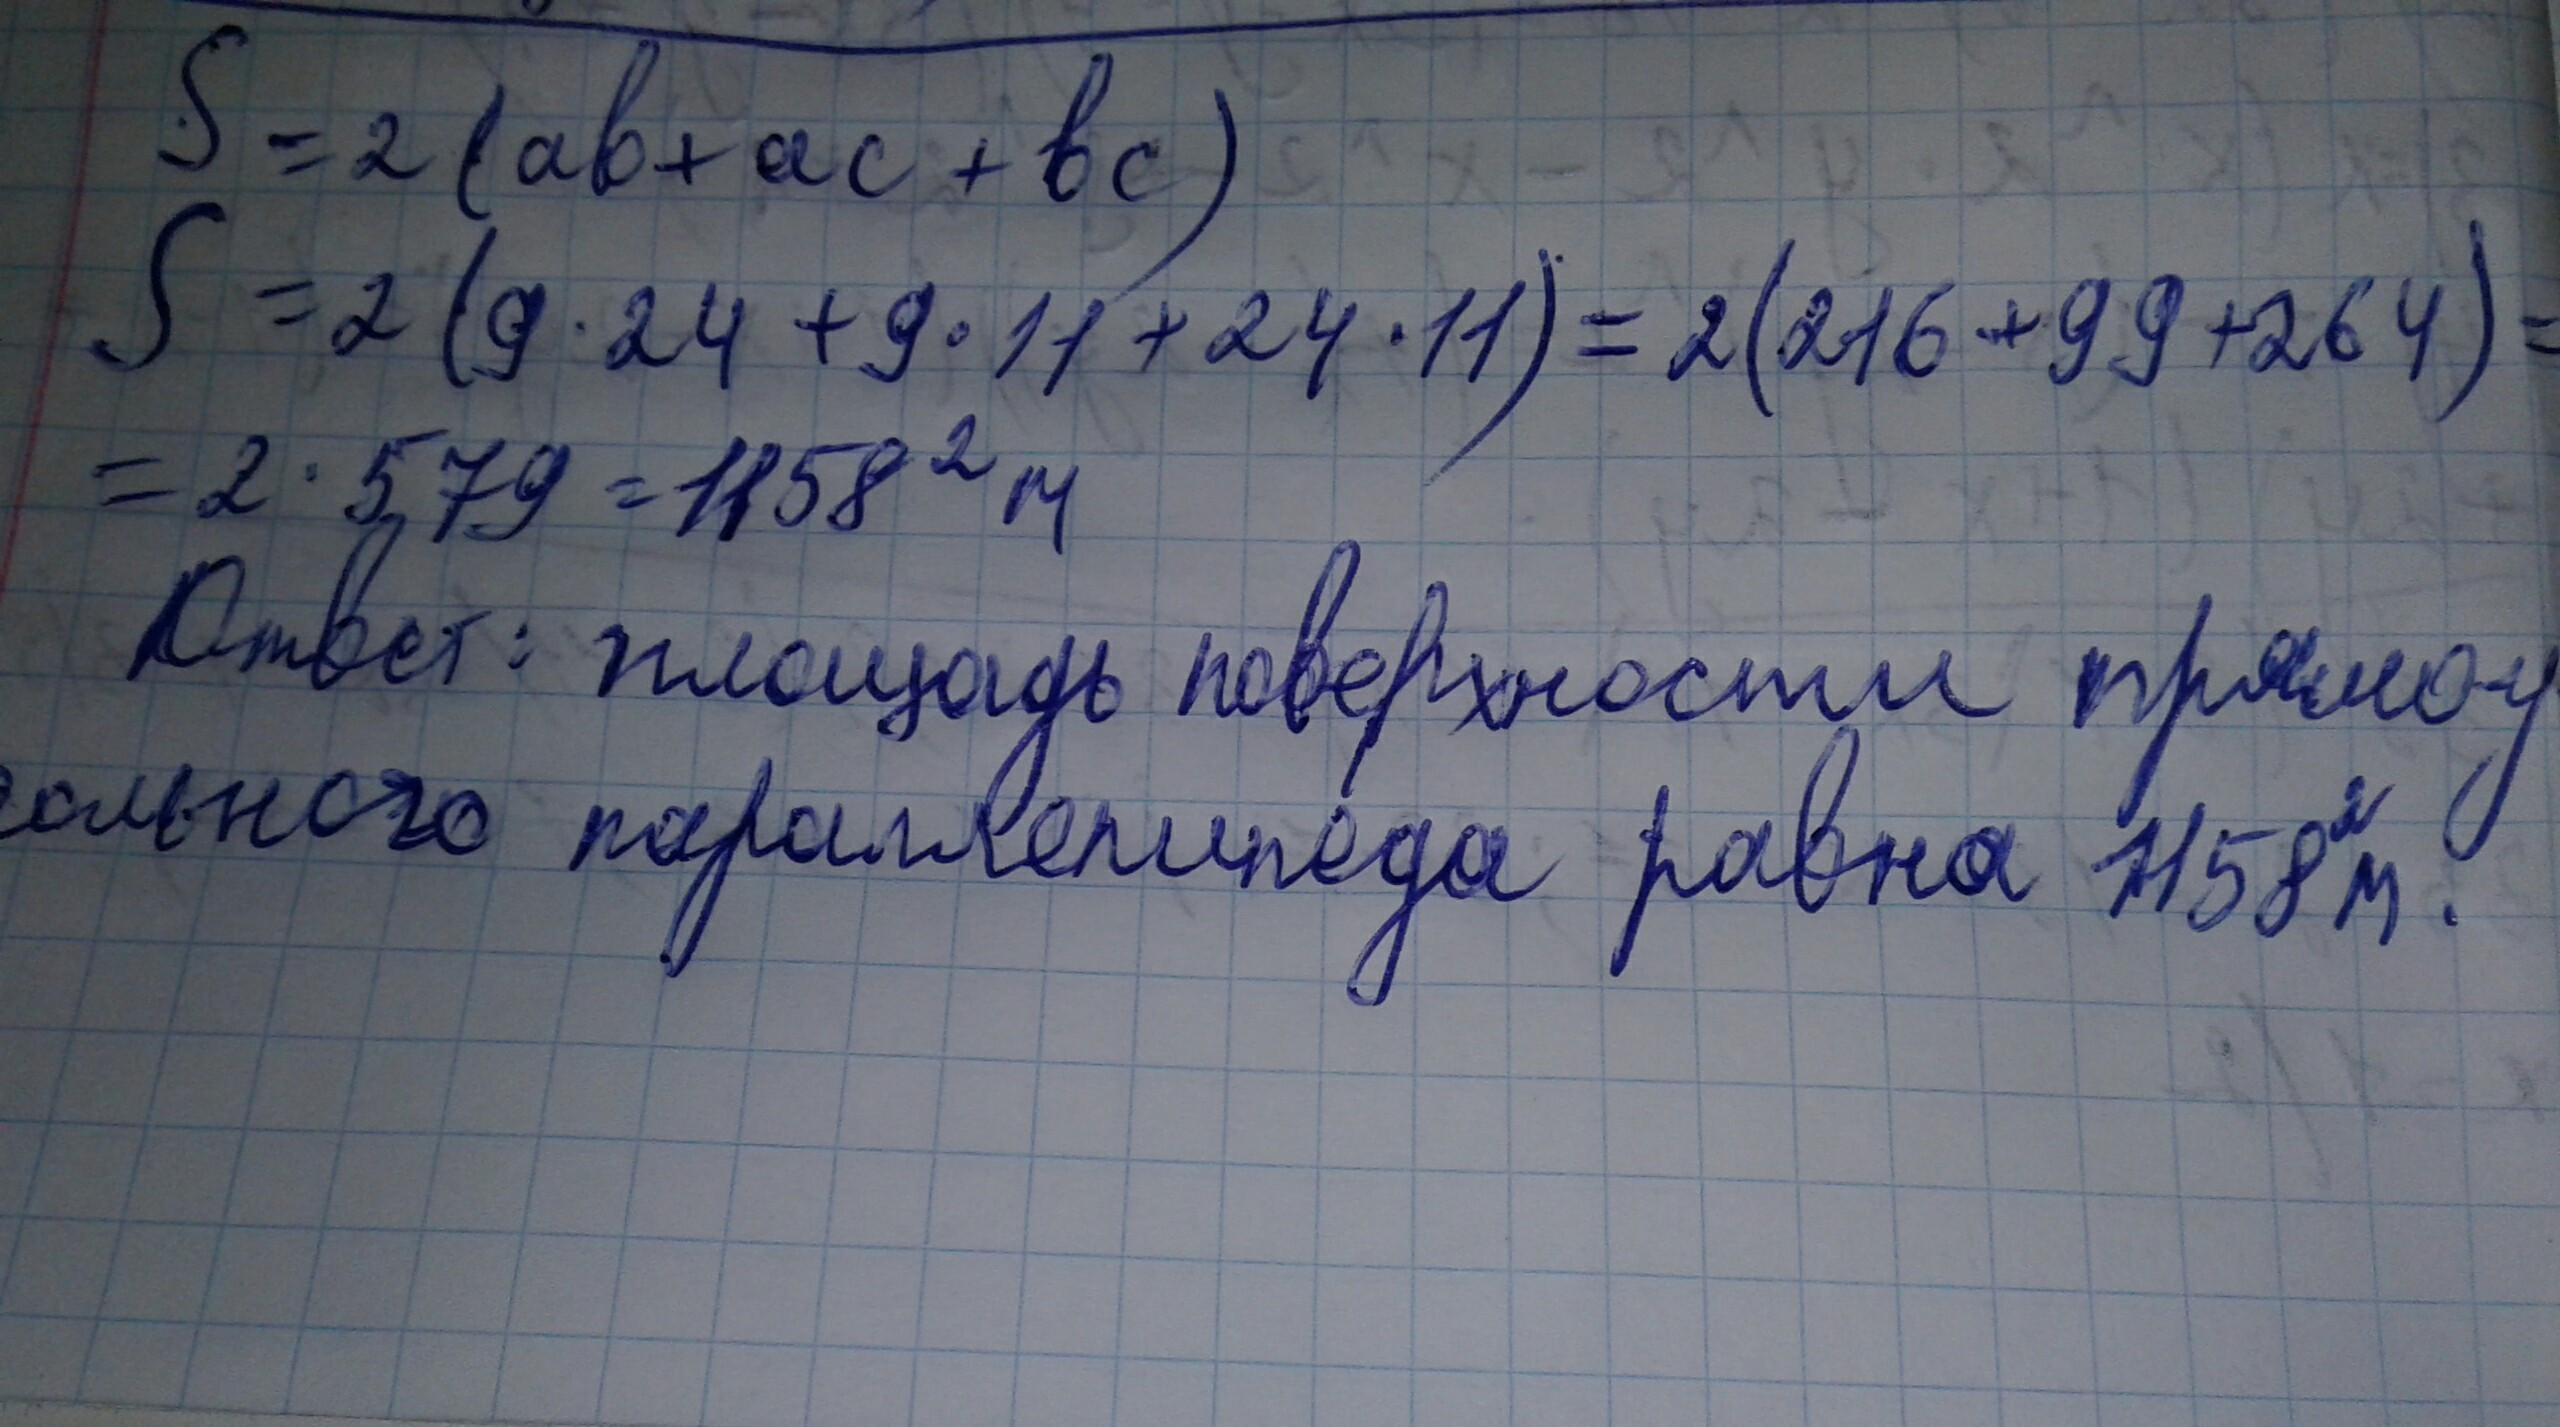 S = 2 (ab + ac + bc)
S = 2 (9 · 24 + 9 · 11 + 24 · 11) = 2 (216 + 99 + 264) =
= 2 · 579 = 1158 ² м
Ответ: площадь поверхности прямоу
гольного параллепипеда равна 1158 ² м.